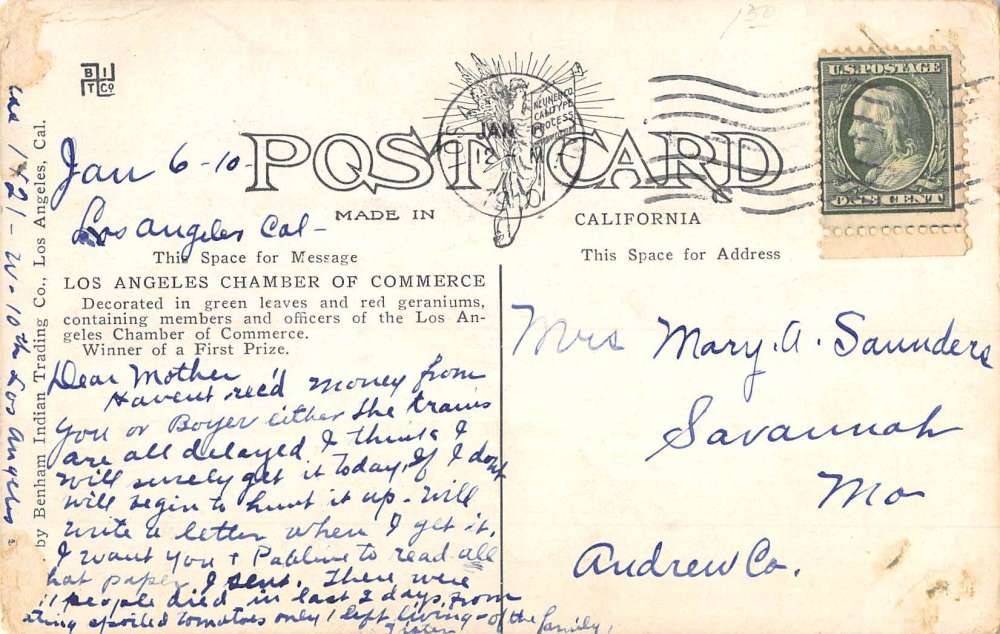 130
B I
T Co
U.S. POSTAGE
ONE CENT
NEUNER CO.
CALITYPE
PROCESS
LOS
JAN 6
12 M
1910
POST CARD
MADE IN CALIFORNIA
Jan 6-10-
Los Angeles Cal-
This Space for Message
This Space for Address
LOS ANGELES CHAMBER OF COMMERCE
Decorated in green leaves and red geraniums,
containing members and officers of the Los An-
geles Chamber of Commerce.
Winner of a First Prize.
Dear Mother
Havent rec'd money from
you or Boyer either the trains
are all delayed, I think I
will surely get it today, If I dont
will begin to hunt it up - will
write a letter when I get it.
I want you + Pauline to read all
hat paper I sent. There were
11 people died in last 2 days from
ating spoiled tomatoes only 1 left living - of the family.
Sister
Mrs Mary. A. Saunders
Savannah
Mo
Andrew Co.
by Benham Indian Trading Co., Los Angeles, Cal.
1421 - W. 10th Los Angeles